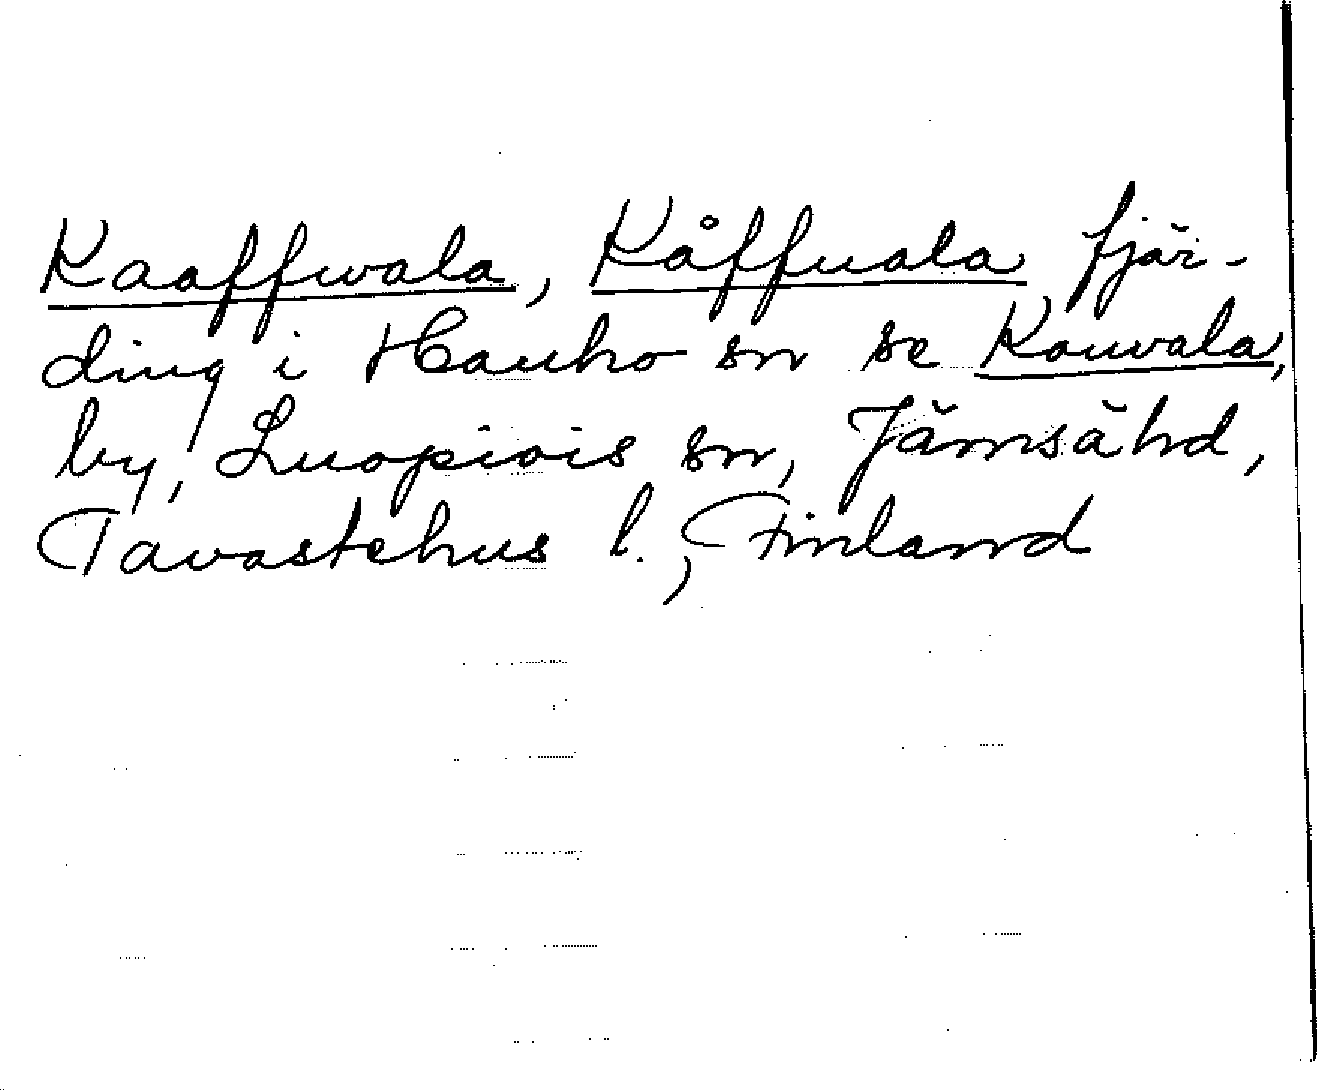 Kaaffwala, Kåffuala fjär-
ding i Hauho sn se Kouvala,
by, Luopiois sn, Jämsä hd,
Tavastehus l., Finland